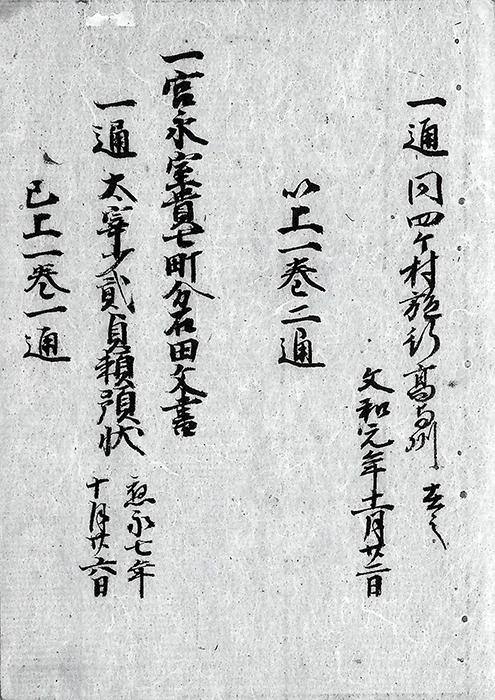 一通 同四ケ村施行 高
文和元年十一月廿二日
以上一巻二通
一宮永室貴七町分石田文書
一通 太宰少貳貞頼預状 應永七年
十月廿六日
已上一巻一通